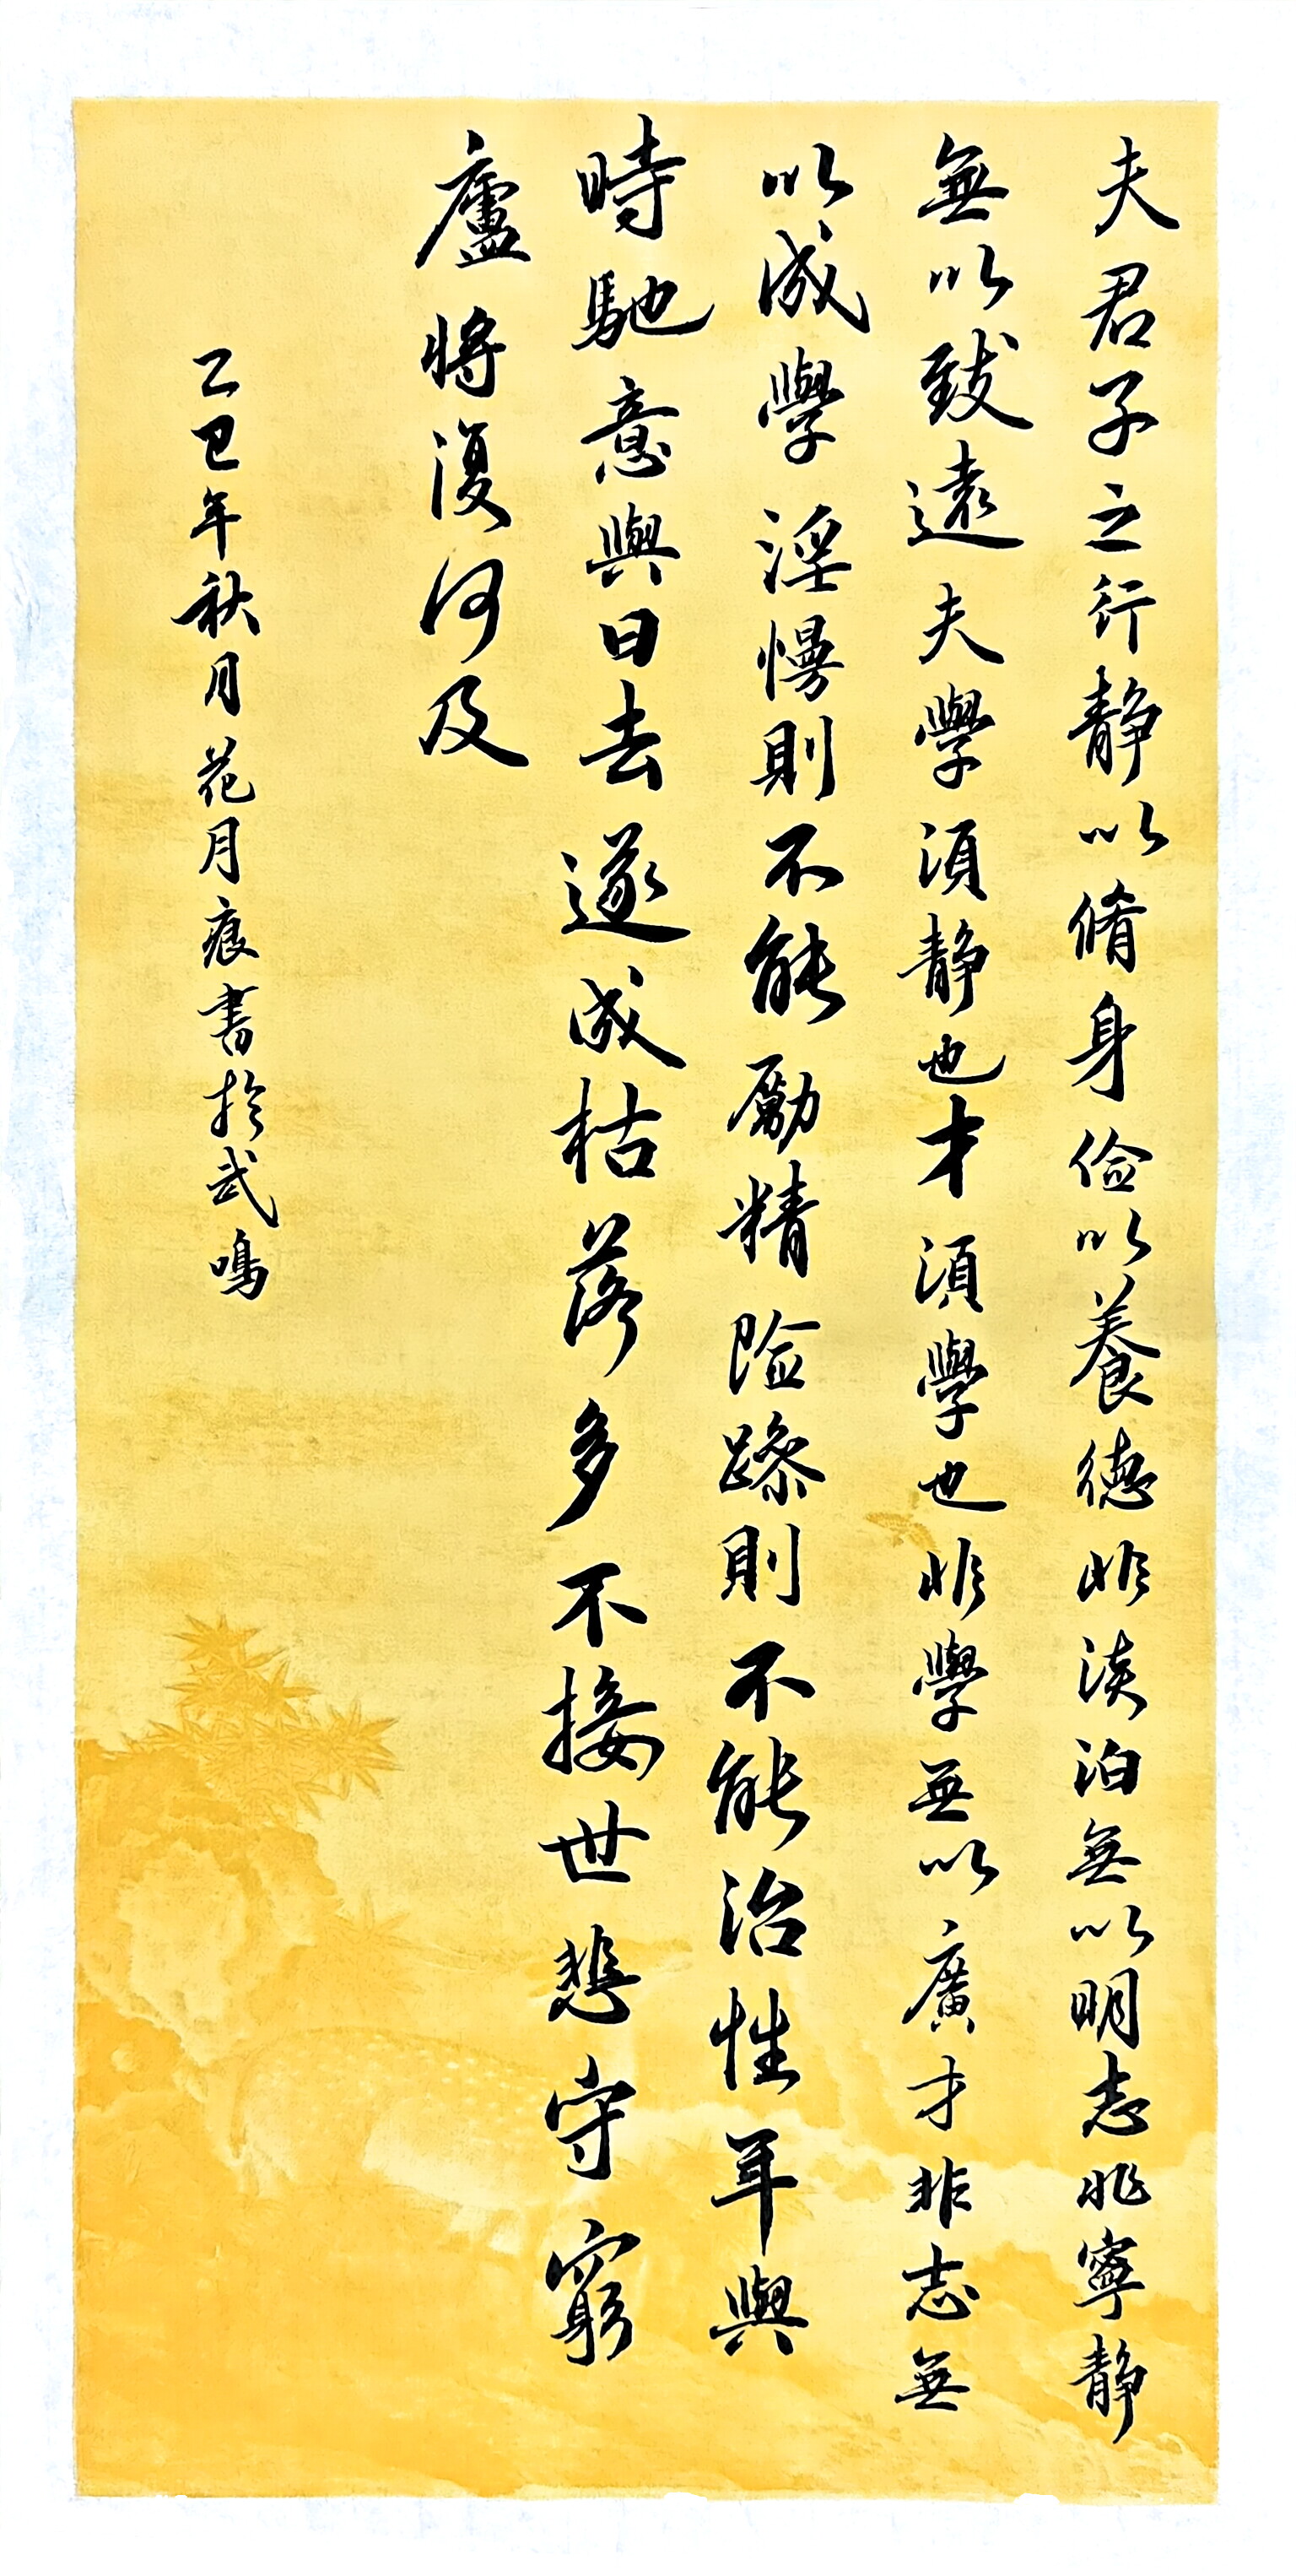 夫君子之行静以脩身俭以養德非淡泊無以明志非寧静
無以致遠夫學須静也才須學也非學無以廣才非志無
以成學淫慢則不能勵精险躁則不能治性年與
時馳意與日去遂成枯落多不接世悲守窮
廬将復何及
乙巳年秋月花月痕書於武鳴